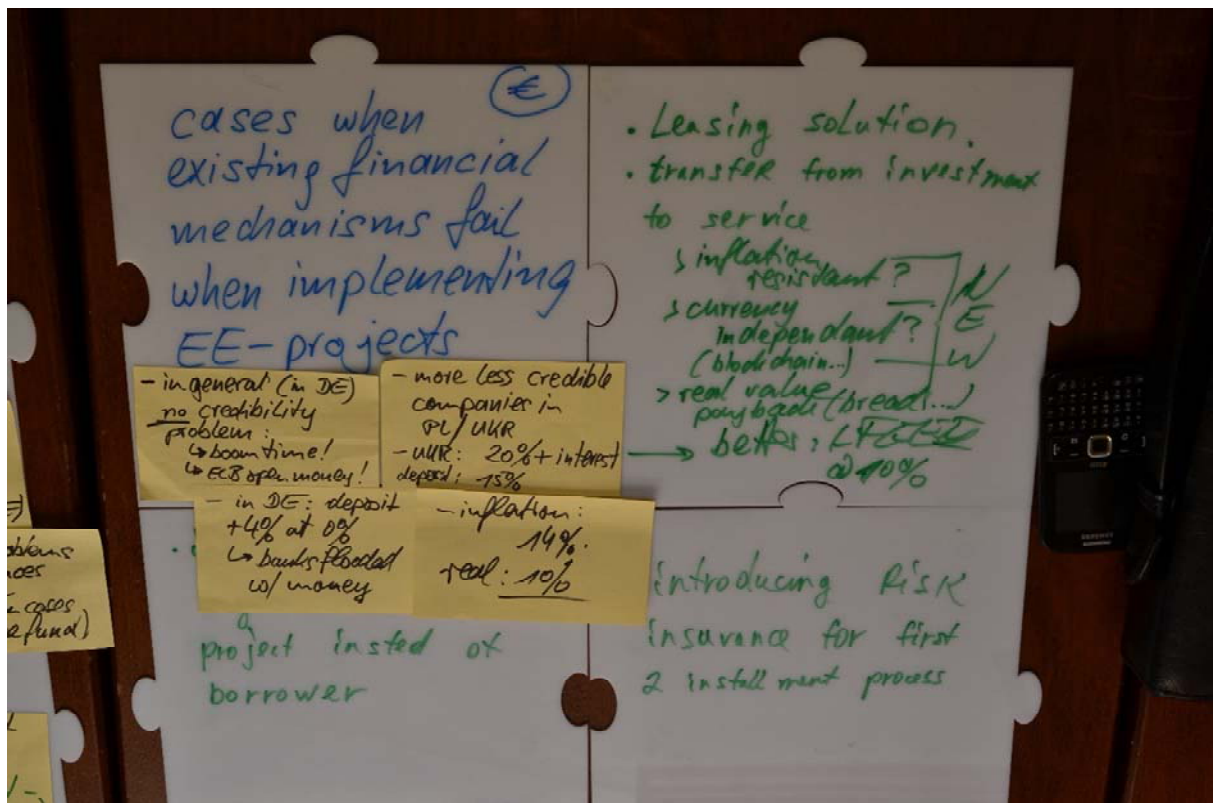 €
cases when
existing financial
mechanisms fail
when implementing
EE-projects
- in general (in DE)
no credibility
problem:
↳ boomtime!
↳ ECB open money!
- more less credible
companies in
PL/UKR
- UKR: 20% + interest
deposit: -15%
- in DE: deposit
+4% at 0%
↳ banks flooded
w/ money
- inflation:
14%
real: 10%
project insted of
borrower
• Leasing solution.
• transfer from investment
to service
> inflation
resistant?
> currency
independant?
(blockchain...)
NEW
> real value
payback (bread...)
→ better:
@ 10%
introducing Risk
insurance for first
2 installment process
oblems
cases
e fund)